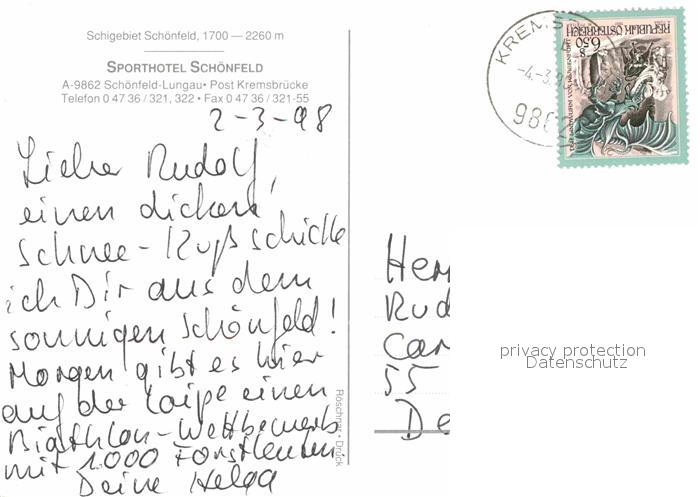 Schigebiet Schönfeld, 1700 — 2260 m
SPORTHOTEL SCHÖNFELD
A-9862 Schönfeld-Lungau • Post Kremsbrücke
Telefon 0 47 36 / 321, 322 • Fax 0 47 36 / 321-55
2-3-98
Lieber Rudolf,
einen dicken
Schnee-Kuß schicke
ich Dir aus dem
sonnigen Schönfeld!
Morgen gibt es hier
auf der Loipe einen
Biathlon-Wettbewerb
mit 1.000 Forstleuten
Deine Helga
Röschnar • Druck
KREMS
-4.-3.9
986
REPUBLIK ÖSTERREICH
6.50
S
Her
Rud
Car
55
De
privacy protection
Datenschutz